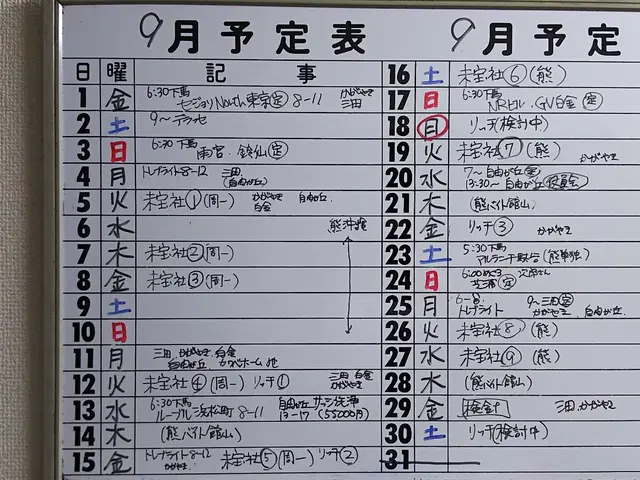 9月予定表
日 曜 記事
1 金 6:30下馬 かがやき
セジョリNorth東京定 8-11 三田
2 土 9〜テラセ
3 日 6:30下馬
雨宮.鈴仙定
4 月 トレナライト8-12 三田
(自由が丘)
5 火 未宝社①(周一) かがやき 自由が丘
白金
6 水 熊沖縄
7 木 未宝社②(周一)
8 金 未宝社③(周一)
9 土
10 日
11 月 三田.かがやき.白金
自由が丘 カワベホーム 他
12 火 未宝社④(周一) リッチ① 三田 白金
かがやき
13 水 6:30下馬 自由が丘 サッシ洗浄
ルーブル浜松町 8-11 13-17 (55000円)
14 木 (熊バイト館山)
15 金 トレナライト8-12 未宝社⑤(周一) リッチ②
かがやき
9月予定
16 土 未宝社⑥(熊)
17 日 6:30下馬
NRビル.GV白金定
18 月 リッチ(検討中)
19 火 未宝社⑦(熊) かがやき
20 水 7〜自由が丘定
13:30〜自由が丘役員会
21 木 (熊バイト館山)
22 金 リッチ③ かがやき
23 土 5:30下馬
(熊単独)
24 日 6:00 次郎さん
芝浦定
25 月 6-8. 9〜三田定
トレナライト かがやき 自由が丘
26 火 未宝社⑧(熊)
27 水 未宝社⑨(熊)
28 木 (熊バイト館山)
29 金 三田.かがやき
30 土 リッチ(検討中)
31